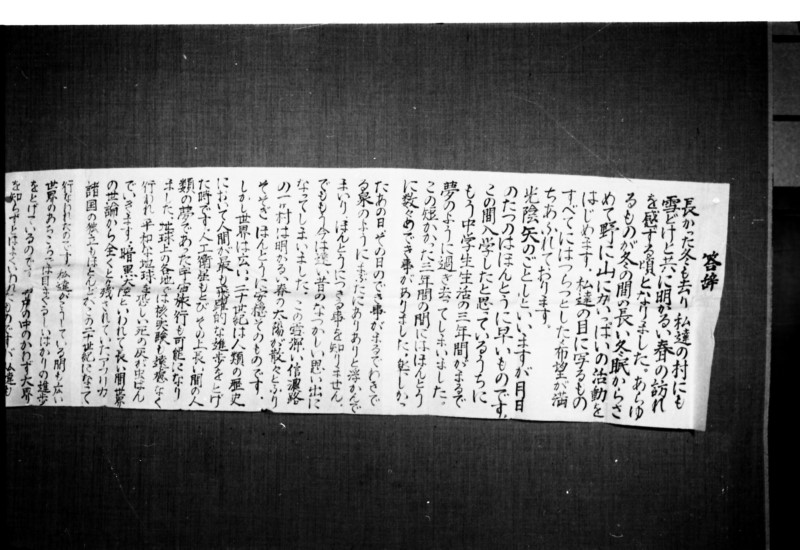 答辞
長かった冬も去り私達の村にも
雪どけと共に明かるい春の訪れ
を感ずる頃となりました。あらゆ
るものが冬の間の長い冬眠からさ
めて野に山にいっぱいの活動を
はじめます。私達の目に写るもの
すべてにはつらつとした希望が満
ちあふれております。
光陰矢のごとしといいますが月日
のたつのはほんとうに早いものです。
この間入学したと思っているうちに
もう中学生生活の三年間がまるで
夢のように過ぎ去ってしまいました。
この短かかった三年間の間にはほんとう
に数々のでき事がありました。郭公かっ
たあの日その日のでき事がまるでわきで
る泉のようにいまだにありありと浮かんで
まいり、ほんとうにつきる事を知りません。
でももう今は遠い昔のなつかしい思い出に
なってしまいました。この
の一村は明かるい春の太陽が散々とふり
そそぎほんとうに安穏そのものです。
しかし世界は広い。二十世紀は人類の歴史
において人間が最も飛躍的な進歩をとげ
た時です。人工衛星もとび、その上長い間の人
類の夢であった宇宙旅行も可能になり
ました。地球上の各地では核実験が
行われ平和な地球を恐しい死の灰が
できます。暗黒大陸といわれて長い間
の世論から全くとり残されていたアフリカ
諸国の独立もほとんどがこの二十世紀になって
行なわれたのです。私達がこうしている間も広い
世界のあちこちでは目まぐるしいばかりの進歩
をとげているのです。井の中のかわず大界
を知らずとはよくいわれたものですが私達も